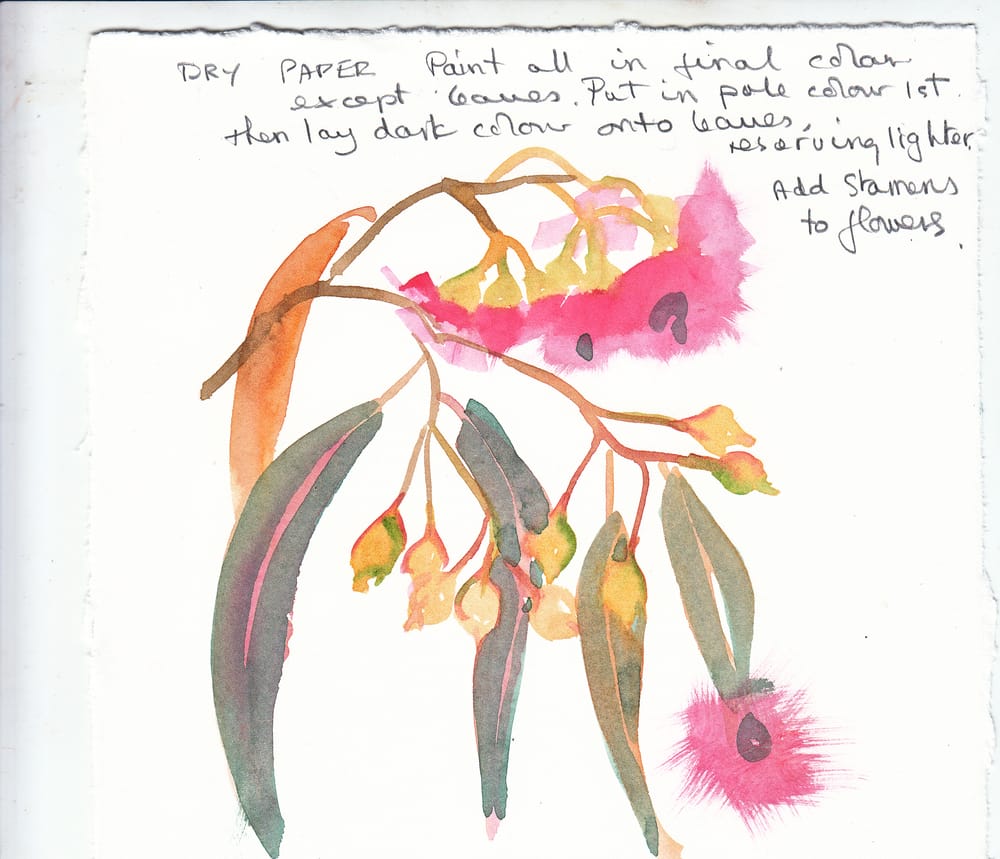 DRY PAPER Paint all in final colour
except leaves. Put in pale colour 1st.
then lay dark colour onto leaves,
reserving lighter.
Add Stamens
to flowers.